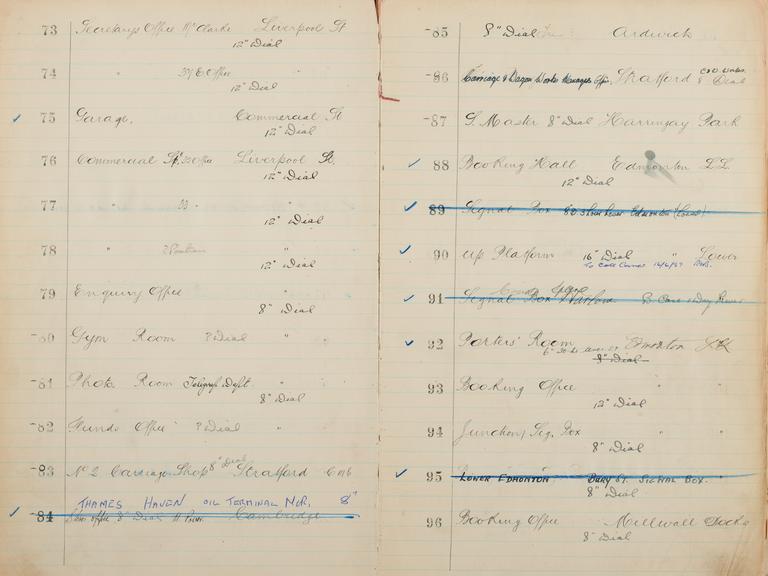 73 Secretary's Office Mr Clarke Liverpool St
12" Dial
74 " Office "
12" Dial
75 Garage, Commercial St
12" Dial
76 Commercial St, Office Liverpool St.
12" Dial
77 " " "
12" Dial
78 " "
12" Dial
79 Enquiry Office "
8" Dial
80 Gym Room ? Dial "
81 Photo Room Telegraph Dept. "
8" Dial
82 Funds Office ? Dial "
83 No 2 Carriage Shop 8" Dial Stratford
THAMES HAVEN OIL TERMINAL MGR, 8"
84 Office 8" Dial Cambridge
85 8" Dial Ardwick
86 Carriage & Wagon Works Managers Off. Stratford
8" Dial
87 S. Master 8" Dial Harringay Park
88 Booking Hall Edmonton L.L.
12" Dial
89 Signal Box Edmonton
90 Up Platform 16" Dial " Lower
91 Signal Box Harlow
92 Porters' Room Edmonton
8" Dial
93 Booking Office " "
12" Dial
94 Junction Sig. Box " "
8" Dial
95 LOWER EDMONTON BURY ST. SIGNAL BOX. "
8" Dial
96 Booking Office Millwall Docks
8" Dial